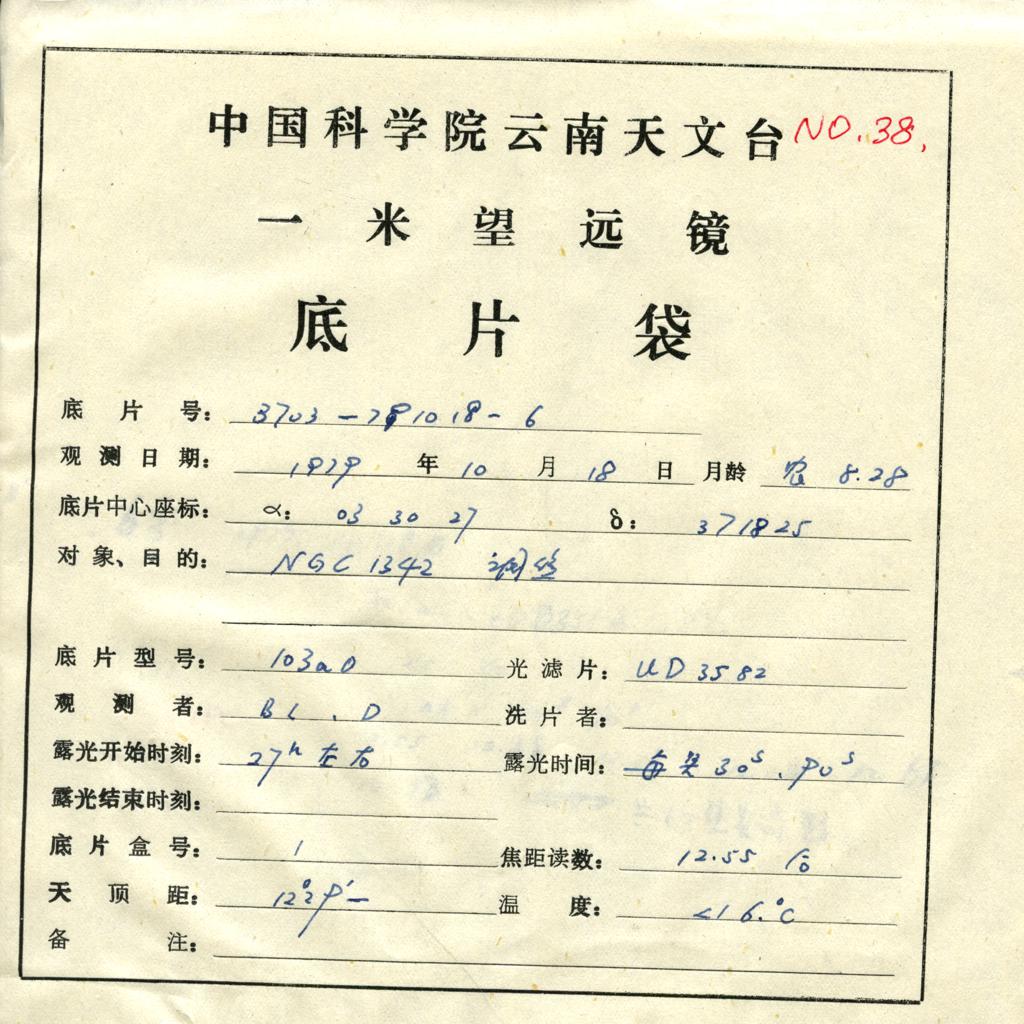 中国科学院云南天文台 NO.38.
一米望远镜
底片袋
底片号: 3703-791018-6
观测日期: 1979 年 10 月 18 日 月龄 农 8.28
底片中心座标: α: 03 30 27 δ: 371825
对象、目的: NGC 1342 调丝
底片型号: 103aO 光滤片: UD 3582
观测者: BL.D 洗片者:
露光开始时刻: 27h 左右 露光时间: 每点 30s.90s
露光结束时刻:
底片盒号: 1 焦距读数: 12.55
天顶距: 12°29′ 温度: <16.°C
备注: